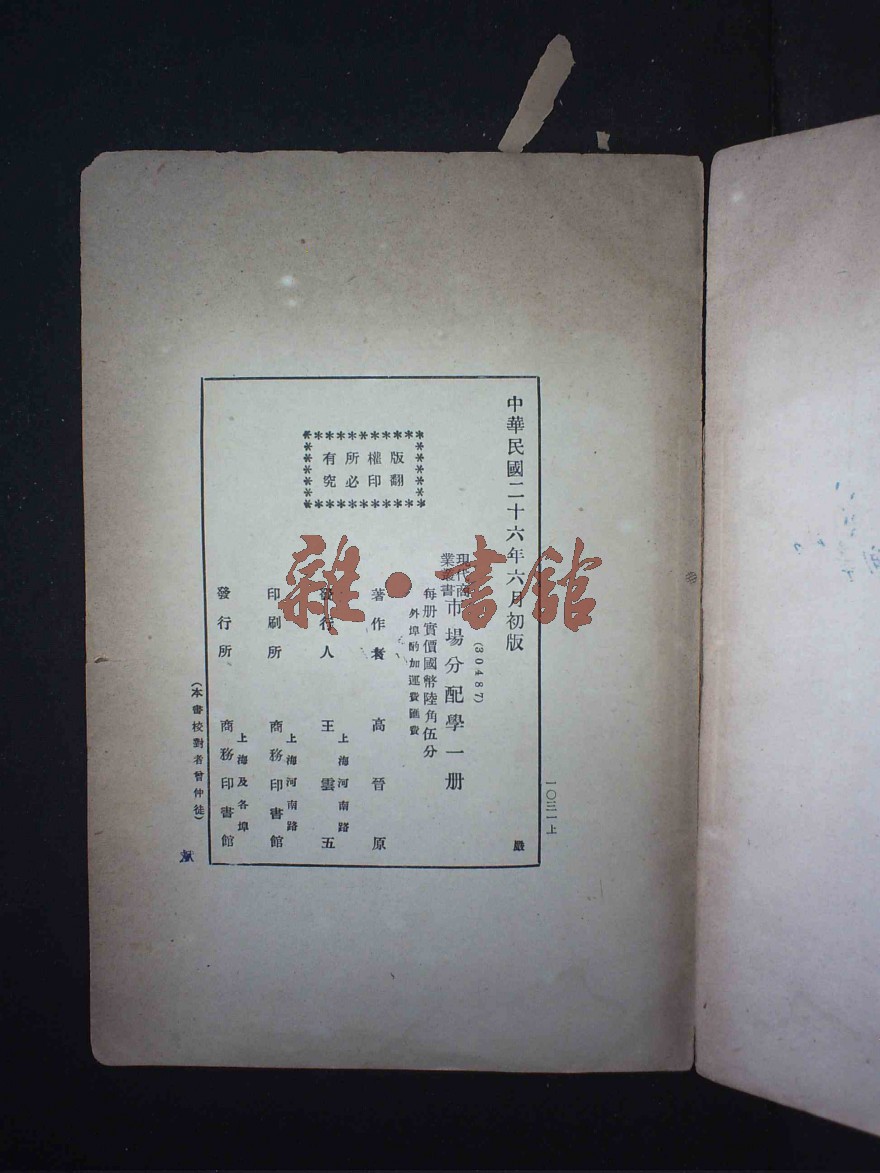 一〇三一上
中華民國二十六年六月初版
嚴
(30487)
現代商業叢書 市場分配學一册
每册實價國幣陸角伍分
外埠酌加運費匯費
版權所有
翻印必究
著作者 高晉原
發行人 王雲五
上海河南路
印刷所 商務印書館
上海河南路
發行所 商務印書館
上海及各埠
(本書校對者曾仲徒)
雜·書館